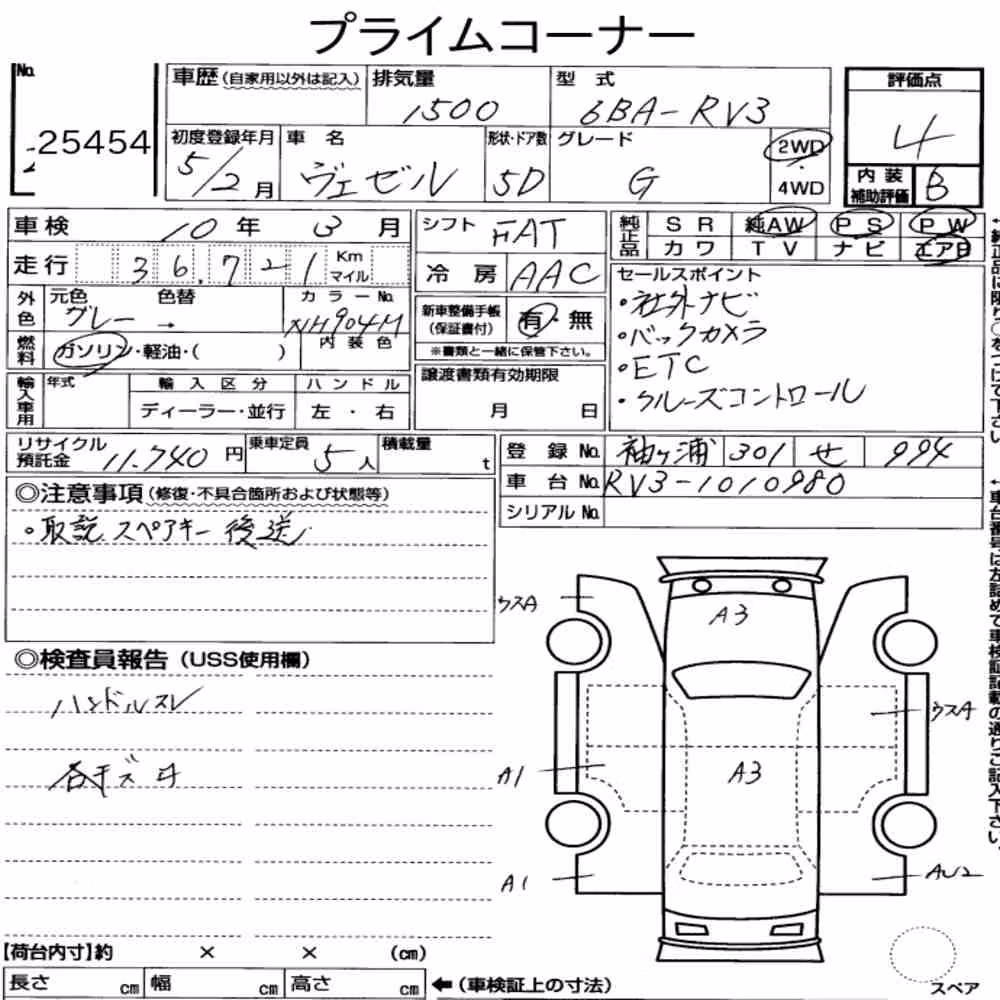 プライムコーナー
No. 25454
車歴(自家用以外は記入) 排気量 1500 型式 6BA-RV3
評価点 4
初度登録年月 5/2月 車名 ヴェゼル 形状・ドア数 5D グレード G 2WD 4WD
内装補助評価 B
車検 10年 3月 シフト FAT 純正品 SR 純AW PS PW
カワ TV ナビ エアB
走行 36,721 Km マイル 冷房 AAC
セールスポイント
・社外ナビ
・バックカメラ
・ETC
・クルーズコントロール
外色 元色 グレー → 色替 カラーNo. NH904M
新車整備手帳(保証書付) 有・無
※書類と一緒に保管下さい。
燃料 ガソリン・軽油・( ) 内装色
輸入車用 年式 輸入区分 ディーラー・並行 ハンドル 左・右
譲渡書類有効期限 月 日
リサイクル預託金 11,740円 乗車定員 5人 積載量 t
登録No. 袖ヶ浦 301 せ 994
車台No. RV3-1010980
シリアルNo.
◎注意事項(修復・不具合箇所および状態等)
・取説 スペアキー 後送
◎検査員報告(USS使用欄)
ハンドルスレ
各キズ
ウスA
A3
ウスA
A1
A3
A1
AU2
スペア
【荷台内寸】約 × × (cm)
長さ cm 幅 cm 高さ cm ←(車検証上の寸法)
←純正品に限り○をつけて下さい
←車台番号は左詰めで車検証記載の通りご記入下さい。